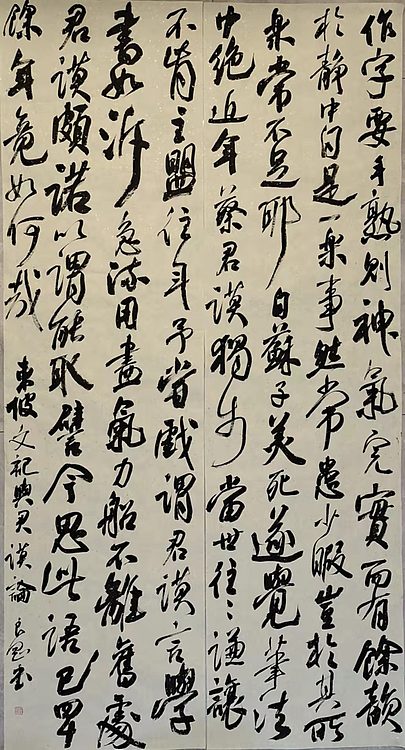 作字要手熟則神氣完實而有餘韻
於靜中自是一樂事然常患少暇豈於其所
樂常不足耶自蘇子美死遂覺筆法
中絕近年蔡君謨獨步當世往々謙讓
不肯主盟往年予嘗戲謂君謨言學
書如泝急流用盡氣力船不離舊處
君謨頗諾以謂能取譬今思此語已四十
餘年竟如何哉
東坡文記與君謨論 書